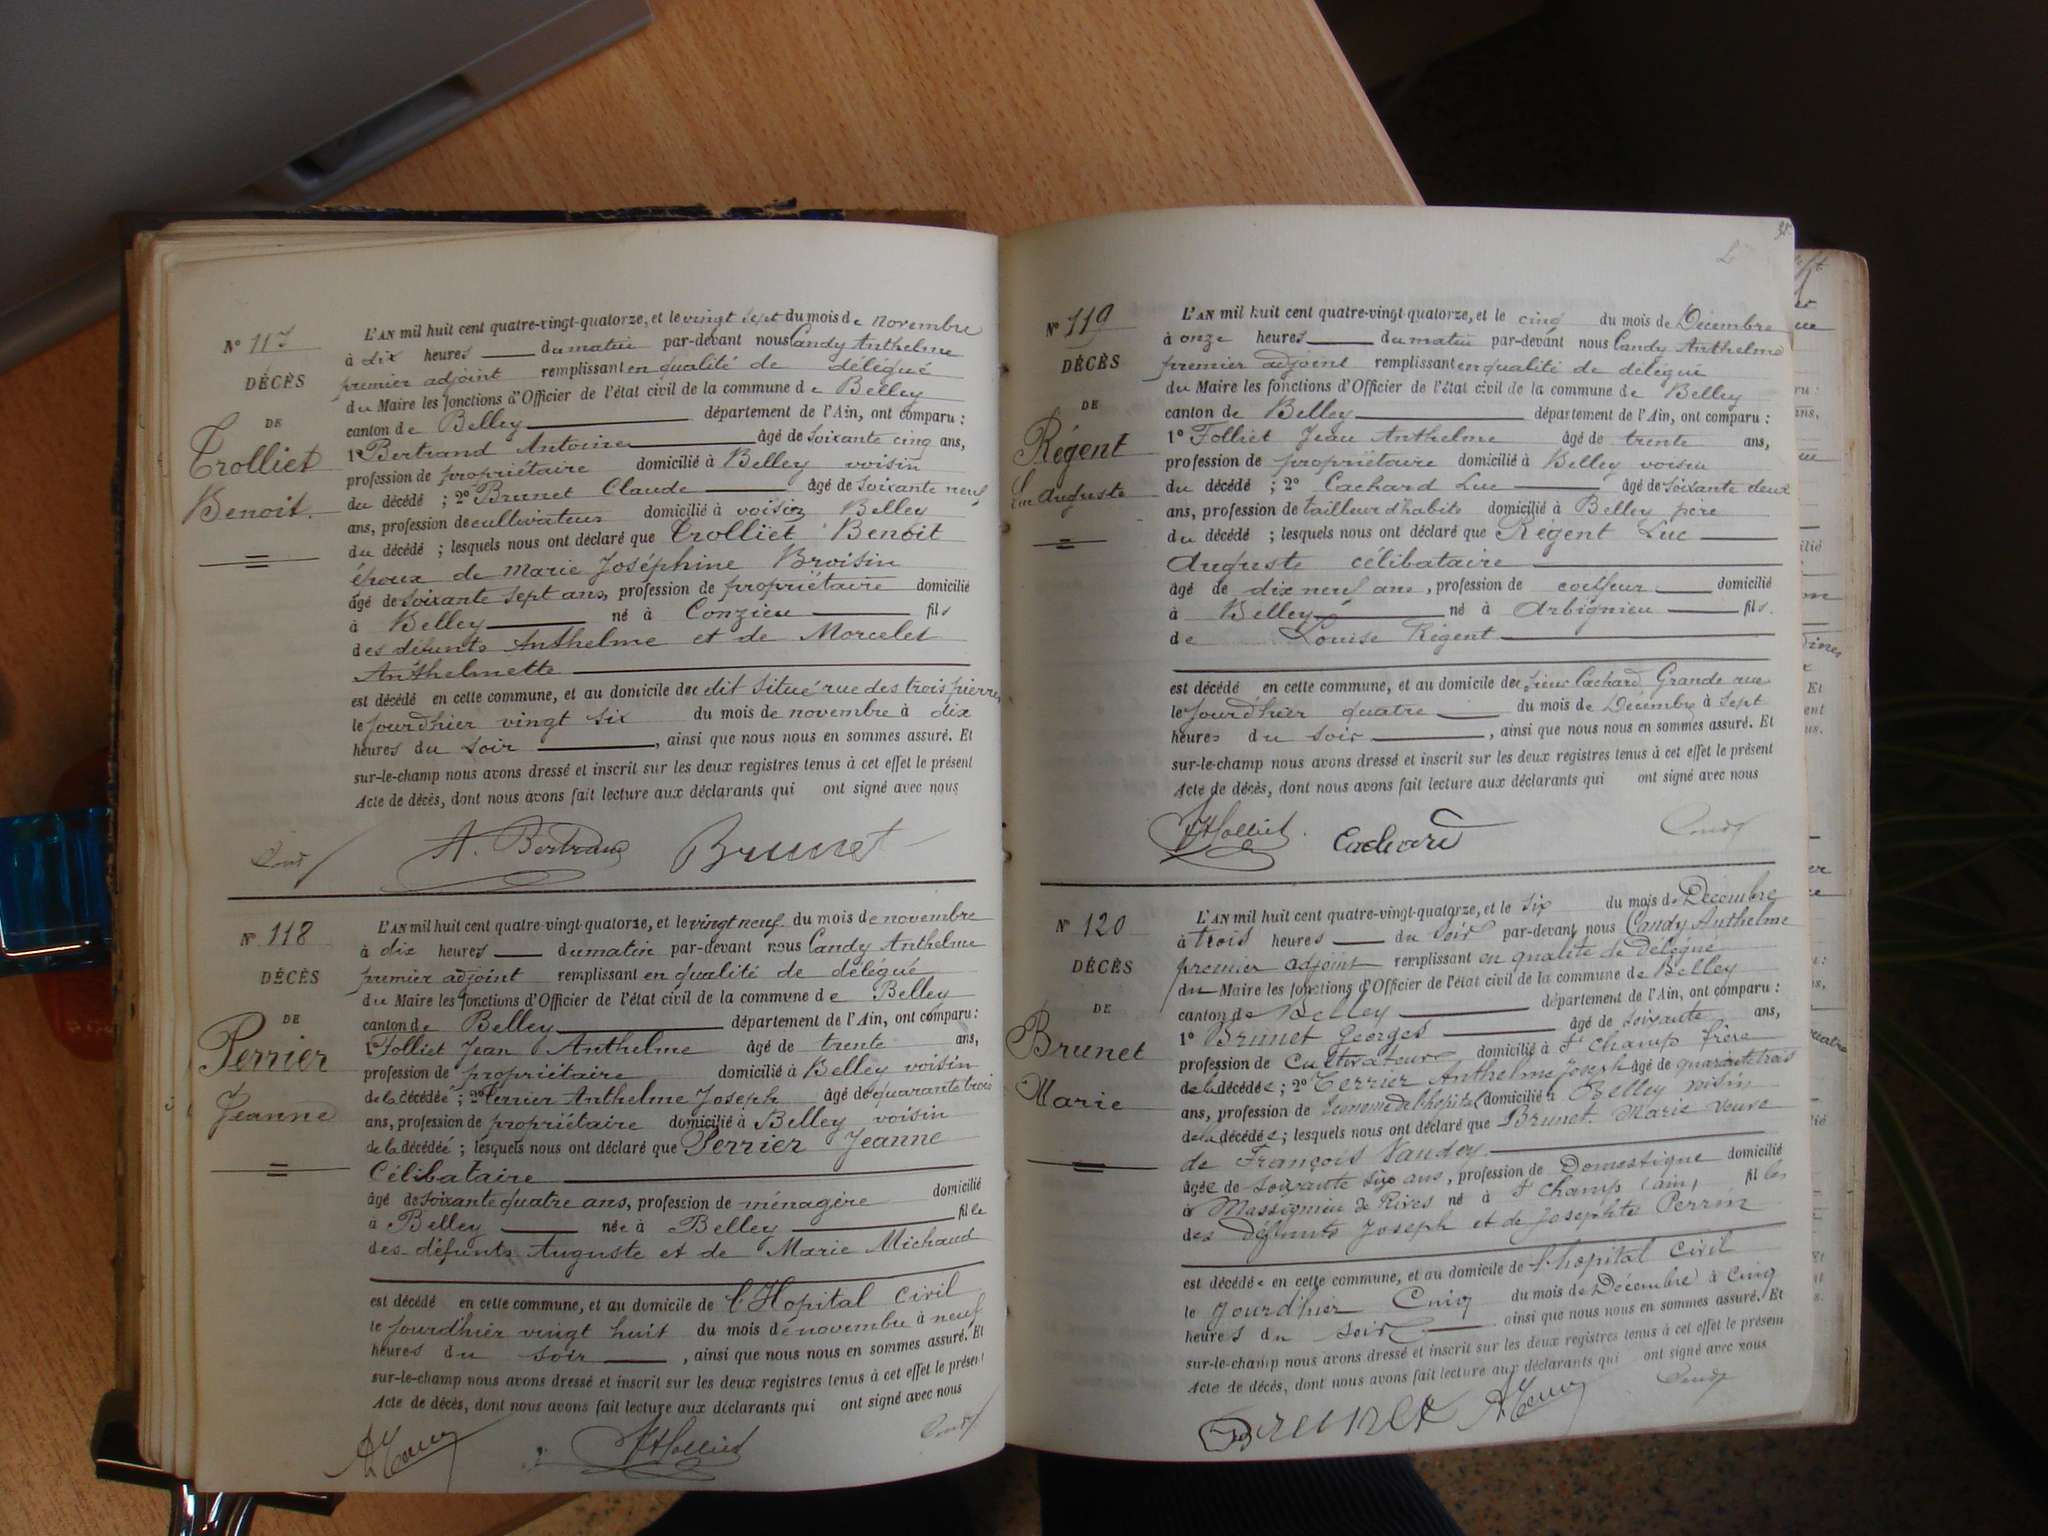 N° 117
DÉCÈS
DE
Trolliet
Benoit.
L'AN mil huit cent quatre-vingt-quatorze, et le vingt sept du mois de novembre
à dix heures du matin par-devant nous Candy Anthelme
premier adjoint remplissant en qualité de délégué
du Maire les fonctions d'Officier de l'état civil de la commune de Belley
canton de Belley département de l'Ain, ont comparu :
1° Bertrand Antoine âgé de soixante cinq ans,
profession de propriétaire domicilié à Belley voisin
du décédé ; 2° Brunet Claude âgé de soixante neuf
ans, profession de cultivateur domicilié à voisin Belley
du décédé ; lesquels nous ont déclaré que Trolliet Benoit
époux de Marie Joséphine Broisin
âgé de soixante sept ans, profession de propriétaire domicilié
à Belley né à Conzieu fils
des défunts Anthelme et de Morcelet
Anthelmette
est décédé en cette commune, et au domicile du dit situé rue des trois pierres
le jourdhier vingt six du mois de novembre à dix
heures du soir, ainsi que nous nous en sommes assuré. Et
sur-le-champ nous avons dressé et inscrit sur les deux registres tenus à cet effet le présent
Acte de décès, dont nous avons fait lecture aux déclarants qui ont signé avec nous
A. Bertrand Brunet
N° 118
DÉCÈS
DE
Perrier
Jeanne
L'AN mil huit cent quatre-vingt-quatorze, et le vingt neuf du mois de novembre
à dix heures du matin par-devant nous Candy Anthelme
premier adjoint remplissant en qualité de délégué
du Maire les fonctions d'Officier de l'état civil de la commune de Belley
canton de Belley département de l'Ain, ont comparu :
1° Folliet Jean Anthelme âgé de trente ans,
profession de propriétaire domicilié à Belley voisin
de la décédée ; 2° Terrier Anthelme Joseph âgé de quarante trois
ans, profession de propriétaire domicilié à Belley voisin
de la décédée ; lesquels nous ont déclaré que Perrier Jeanne
Célibataire
âgé de soixante quatre ans, profession de ménagère domicilié
à Belley née à Belley fille
des défunts Auguste et de Marie Michaud
est décédé en cette commune, et au domicile de l'Hopital civil
le jourdhier vingt huit du mois de novembre à neuf
heures du soir, ainsi que nous nous en sommes assuré. Et
sur-le-champ nous avons dressé et inscrit sur les deux registres tenus à cet effet le présent
Acte de décès, dont nous avons fait lecture aux déclarants qui ont signé avec nous
N° 119
DÉCÈS
DE
Régent
Luc Auguste
L'AN mil huit cent quatre-vingt quatorze, et le cinq du mois de Décembre
à onze heures du matin par-devant nous Candy Anthelme
premier adjoint remplissant en qualité de délégué
du Maire les fonctions d'Officier de l'état civil de la commune de Belley
canton de Belley département de l'Ain, ont comparu :
1° Folliet Jean Anthelme âgé de trente ans,
profession de propriétaire domicilié à Belley voisin
du décédé ; 2° Cachard Luc âgé de soixante deux
ans, profession de tailleur d'habits domicilié à Belley père
du décédé ; lesquels nous ont déclaré que Régent Luc
Auguste célibataire
âgé de dix neuf ans, profession de coiffeur domicilié
à Belley né à Arbignieu fils.
de Louise Régent
est décédé en cette commune, et au domicile du sieur Cachard Grande rue
le jourdhier quatre du mois de Décembre à sept
heures du soir, ainsi que nous nous en sommes assuré. Et
sur-le-champ nous avons dressé et inscrit sur les deux registres tenus à cet effet le présent
Acte de décès, dont nous avons fait lecture aux déclarants qui ont signé avec nous
Cachard
N° 120
DÉCÈS
DE
Brunet
Marie
L'AN mil huit cent quatre-vingt-quatorze, et le six du mois de Décembre
à trois heures du soir par-devant nous Candy Anthelme
premier adjoint remplissant en qualité de Délégué
du Maire les fonctions d'Officier de l'état civil de la commune de Belley
canton de Belley département de l'Ain, ont comparu :
1° Brunet Georges âgé de soixante ans,
profession de Cultivateur domicilié à St Champ frère
de la décédée ; 2° Terrier Anthelme Joseph âgé de quarante trois
ans, profession de Econome de l'hopital domicilié à Belley voisin
de la décédée ; lesquels nous ont déclaré que Brunet Marie veuve
de François Vaudey
âgée de soixante six ans, profession de Domestique domicilié
à Massignieu de Rives né à St Champ (ain) fille
des défunts Joseph et de Josephte Perrin
est décédée en cette commune, et au domicile de l'hopital civil
le jourdhier Cinq du mois de Décembre à cinq
heures du soir ainsi que nous nous en sommes assuré. Et
sur-le-champ nous avons dressé et inscrit sur les deux registres tenus à cet effet le présent
Acte de décès, dont nous avons fait lecture aux déclarants qui ont signé avec nous
Brunet